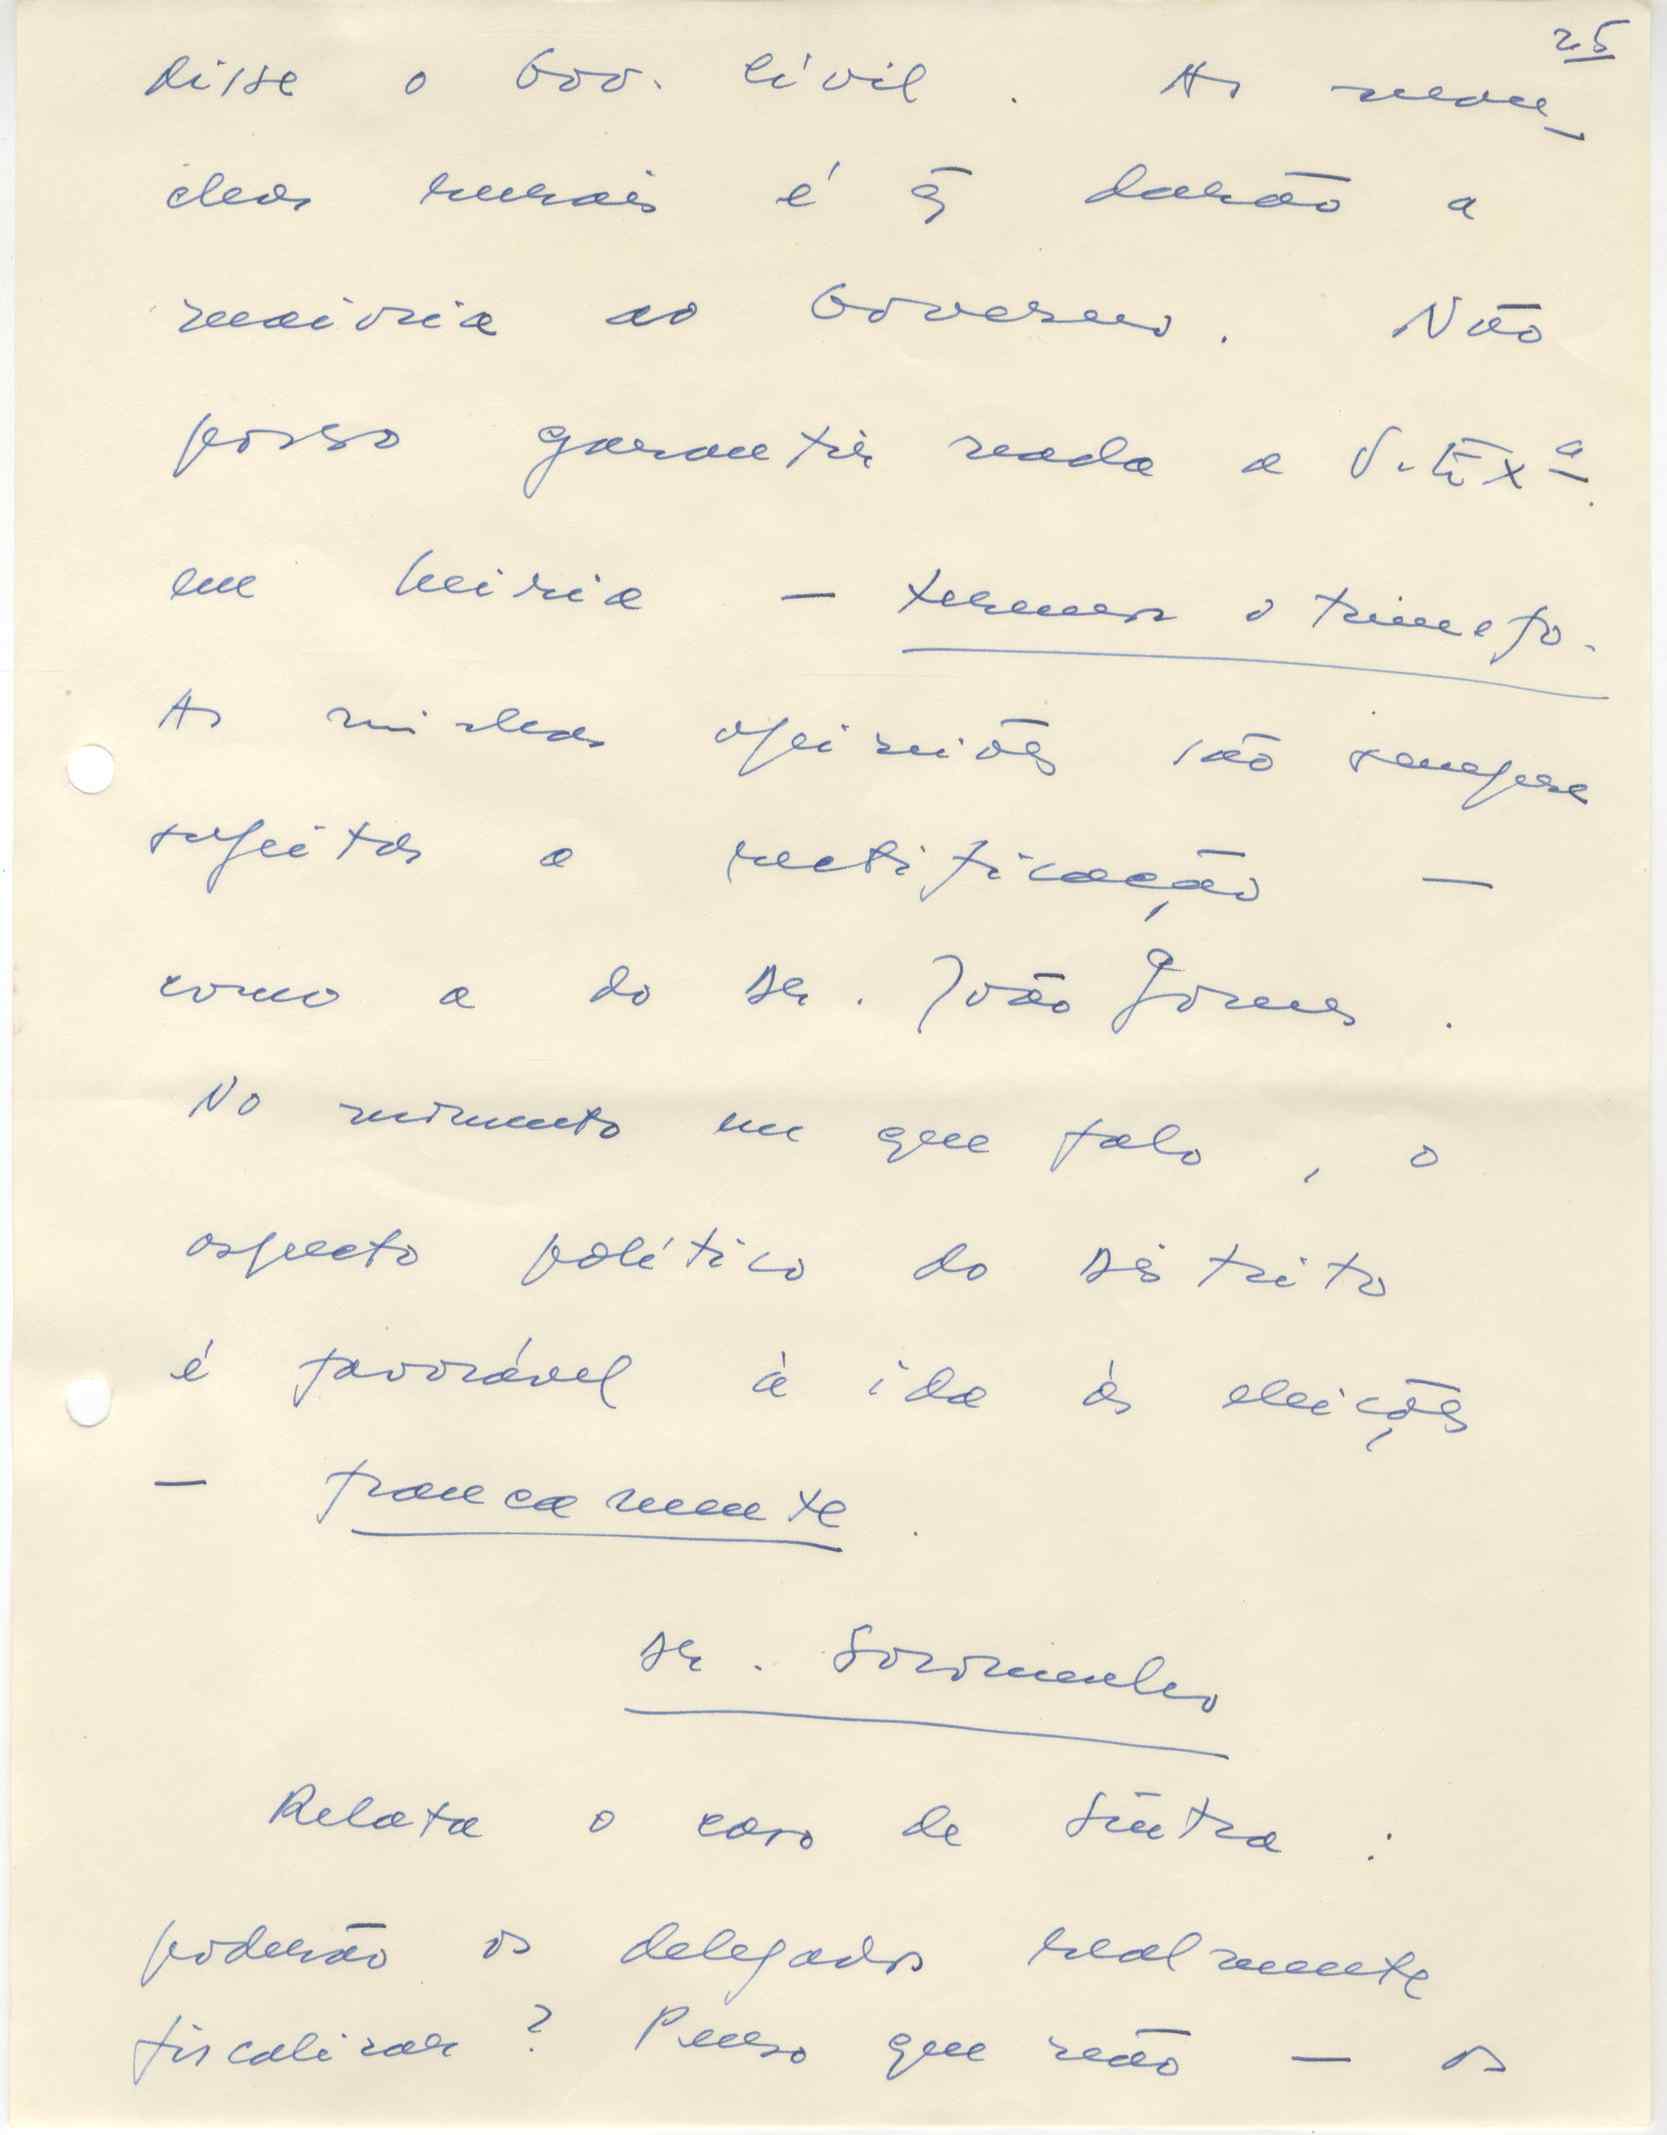 25
disse o Gov. Civil. As man-
chas rurais é q̃ darão a
maioria ao Governo. Não
posso garantir nada a V. Exª.
em Leiria — teremos o triunfo.
As minhas opiniões são sempre
sujeitas a rectificação —
como a do Dr. João Gomes.
No momento em que falo, o
aspecto político do Distrito
é favorável à ida às eleições
— francamente.
Dr. Soromenho
Relata o caso de Sintra:
poderão os delegados realmente
fiscalizar? Penso que não — os